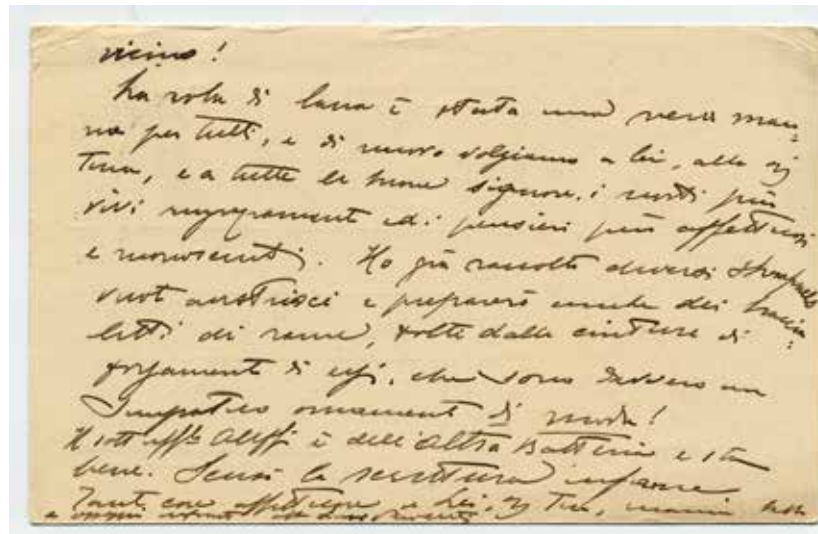 vicino!
La roba di lana è stata una vera man=
na per tutti, e di nuovo volgiamo a lei, alla
Tina, e a tutte le buone signore, i nostri più
vivi ringraziamenti ed i pensieri più affettuosi
e riconoscenti. Ho già raccolto diversi Shrapnells
vuoti austriaci e preparerò anche dei braccia=
letti di rame, tolte dalle cinture di
forzamento di essi, che sono davvero un
simpatico ornamento di moda!
Il sott uff.le è dell'altra Batteria e sta
bene. Scusi la scrittura infame
Tante cose affettuose a Lei, Tina, mamma